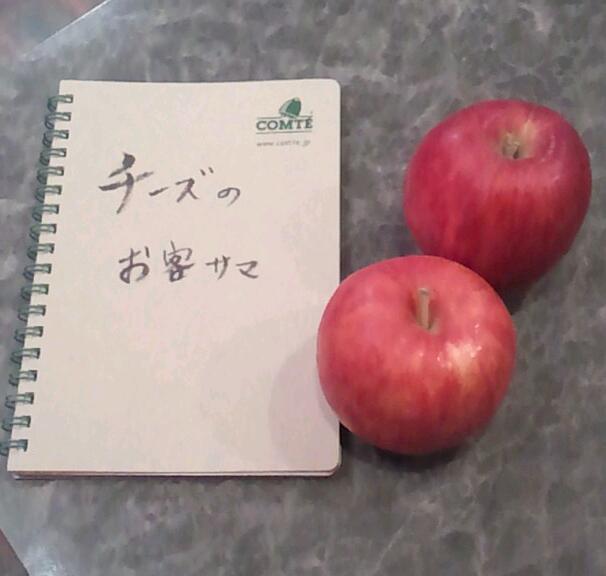 COMTÉ
www.comte.jp
チーズの
お客サマ